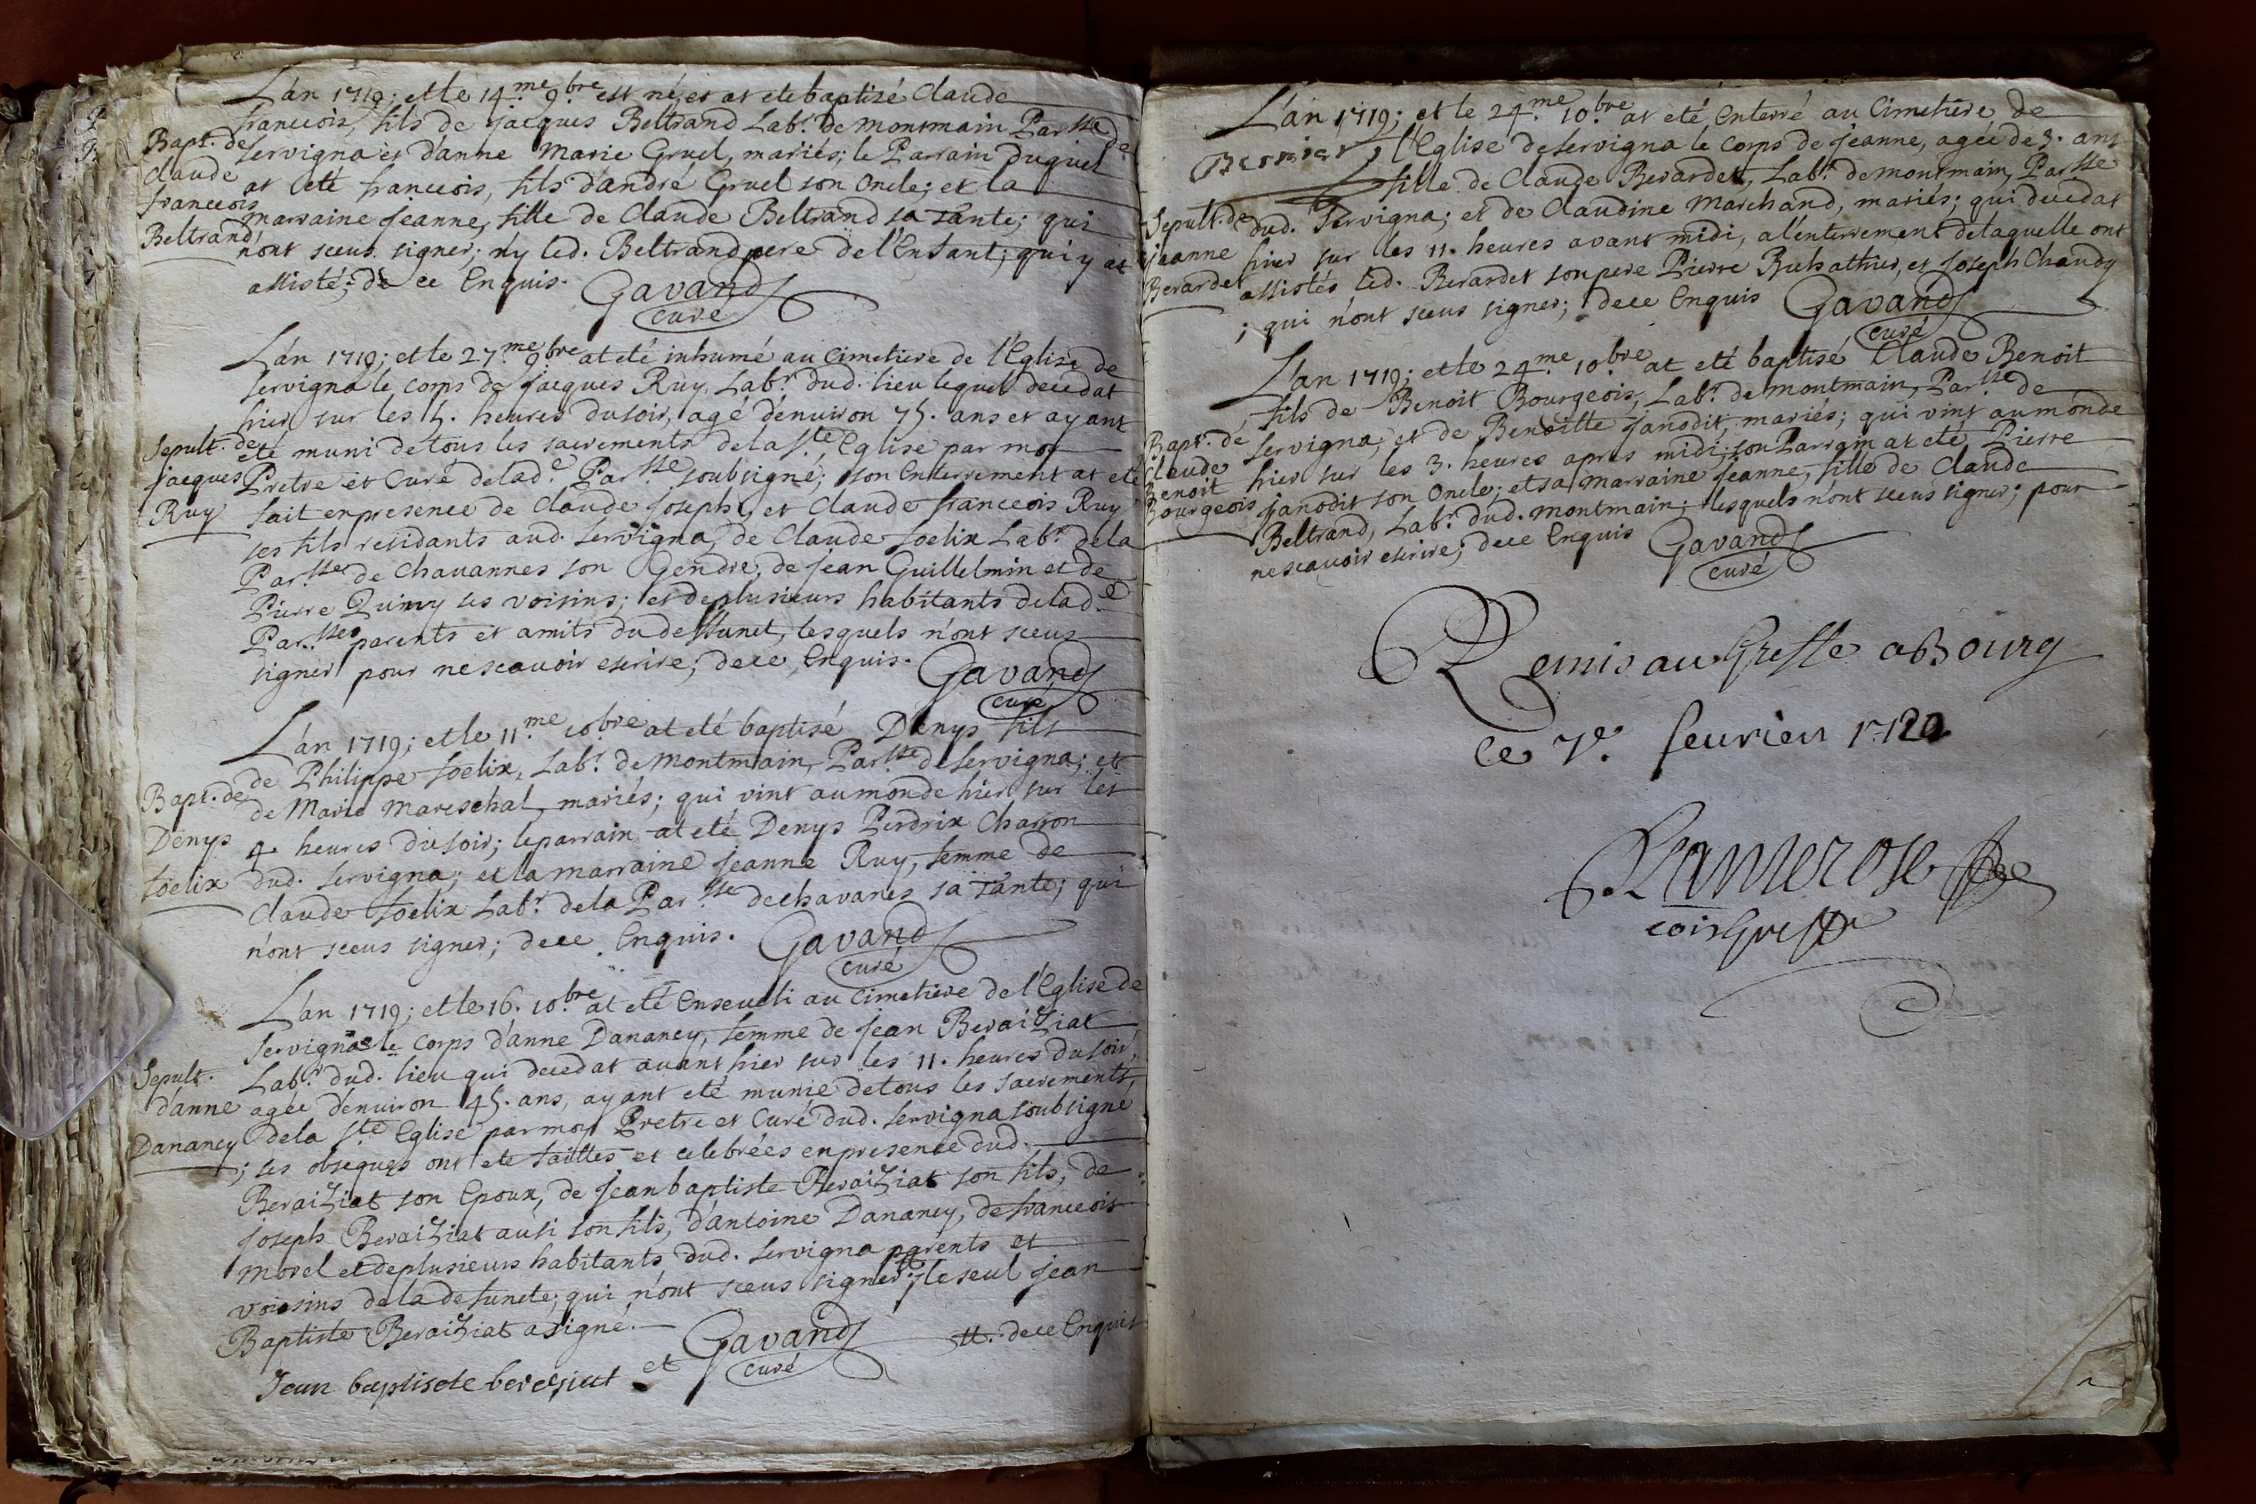 L'an 1719; et le 14.me 9.bre est né, et at eté baptizé Claude
francois, fils de jacques Beltrand Lab.r de montmain Par.sse de
Bapt. de
Claude
francois
Beltrand
Servigna et d'anne Marie Gruel, mariés; le Parrain duquel
at eté francois, fils d'andré Gruel son Oncle; et la
marraine jeanne, fille de Claude Beltrand sa tante; qui
n'ont sceus signer; ny led. Beltrand pere de l'Enfant; qui y at
assisté; de ce Enquis. Gavand
curé
L'an 1719; et le 27.me 9.bre at eté inhumé au Cimetiere de l'Eglise de
Servigna le corps de jacques Ruy, Lab.r dud. lieu lequel decedat
hier sur les 5. heures du soir, agé d'enuiron 75. ans et ayant
Sepult. de
jacques
Ruy
eté muni de tous les sacrements de la S.te Eglise par moy
Pretre et Curé de lad.e Par.sse soubsigné; son Enterrement at eté
fait en presence de Claude joseph, et Claude francois Ruy
ses fils residants aud. Servigna, de Claude foelix Lab.r de la
Par.sse de Chauannes son Gendre, de jean Guillelmin et de
Pierre Quiny ses voisins; et de plusieurs habitants de lad.e
Par.sse parents et amits du deffunct, lesquels n'ont sceus
signer pour ne scauoir escrire; de ce Enquis. Gavand
curé
L'an 1719; et le 11.me 10.bre at eté baptisé Denys fils
de Philippe foelix, Lab.r de Montmain, Par.sse de Servigna; et
Bapt. de
Denys
foelix
de Marie Mareschal, mariés; qui vint au monde hier sur les
4. heures du soir; le parrain at eté Denys Perdrix Charron
dud. Servigna; et la marraine jeanne Ruy, femme de
Claude foelix Lab.r de la Par.sse de chavanes sa tante; qui
n'ont sceus signer; de ce Enquis. Gavand
curé
L'an 1719; et le 16. 10.bre at eté Enseueli au Cimetiere de l'Eglise de
Servigna le corps d'anne Dananey, femme de jean Beraiziat
Sepult.
d'anne
Dananey
Lab.r dud. lieu qui decedat auant hier sur les 11. heures du soir,
agée d'enuiron 45. ans, ayant eté munie de tous les sacrements
de la S.te Eglise par moy Pretre et Curé dud. Servigna soubsigné
; ses obseques ont eté faittes et celebrées en presence dud.
Beraiziat son Epoux, de jean baptiste Beraiziat son fils, de
joseph Beraiziat ausi son fils, d'antoine Dananey, de francois
Morel et de plusieurs habitants dud. Servigna parents et
voisins de la defuncte; qui n'ont sceus signer; # le seul jean
Baptiste Beraiziat a signé. Gavand #. de ce Enquis
curé
Jean baptiste beresiat et
L'an 1719; et le 24.me 10.bre at eté Enterré au Cimetiere de
Bernier
l'Eglise de Servigna le corps de jeanne, agée de 3. ans
fille de Claude Berardet, Lab.r de montmain, Par.sse
Sepult. de
jeanne
Berardet
dud. Servigna; et de Claudine Marchand, mariés; qui decedat
hier sur les 11. heures avant midi, a l'enterrement de laquelle ont
assistés led. Berardet son pere Pierre et joseph Chaudy
; qui n'ont sceus signer; de ce Enquis Gavand
curé
L'an 1719; et le 24.me 10.bre at eté baptisé Claude Benoit
fils de Benoit Bourgeois, Lab.r de Montmain, Par.sse de
Bapt. de
Claude
Benoit
Bourgeois
Servigna, et de Benoitte janodit, mariés; qui vint au monde
hier sur les 3. heures apres midi; son Parrain at eté Pierre
janodit son Oncle; et sa marraine jeanne, fille de Claude
Beltrand, Lab.r dud. montmain; lesquels n'ont sceus signer; pour
ne scauoir escrire; de ce Enquis Gavand
curé
Remis au Greffe a Bourg
ce 7e. feurier 1720